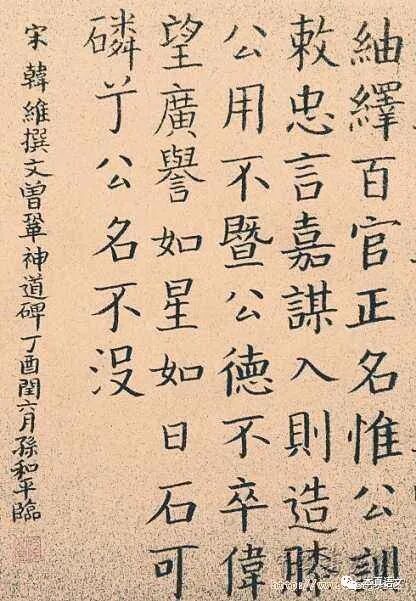 紬繹百官正名惟公訓
敕忠言嘉謀入則造膝
公用不暨公德不卒偉
望廣譽如星如日石可
磷兮公名不没
宋韓維撰文曾鞏神道碑丁酉閏六月孫和平臨